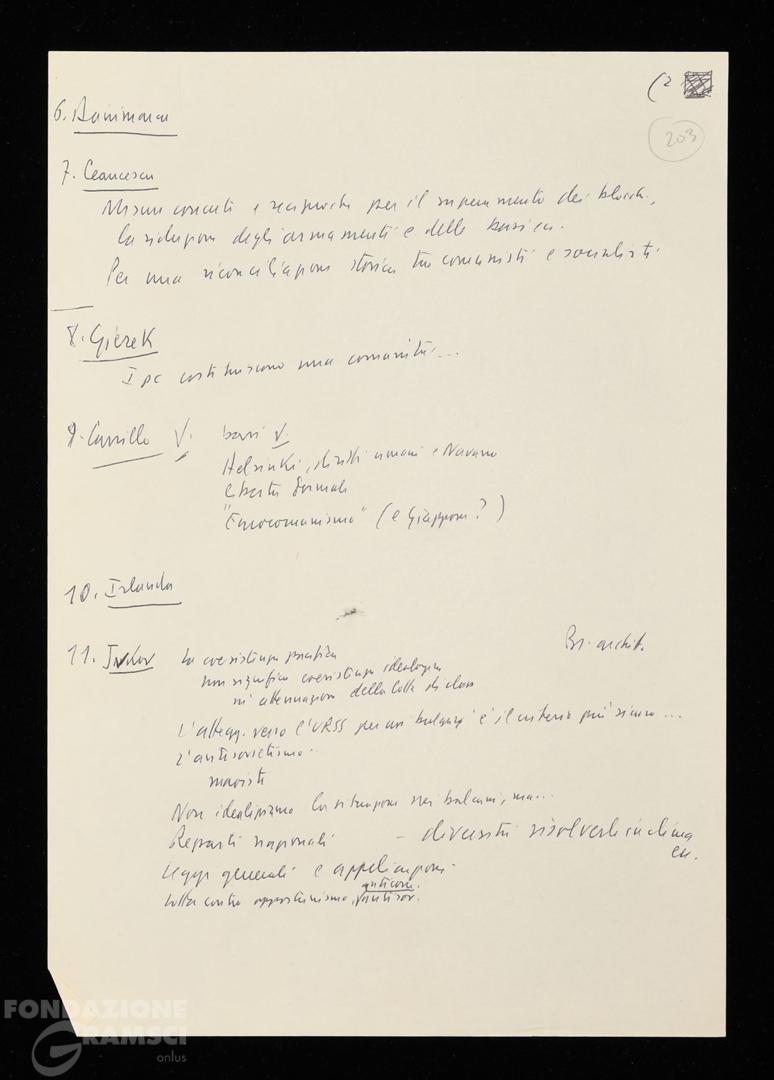 (2
203
6. Danimarca
7. Ceaucescu
Misure concrete e reciproche per il superamento dei blocchi,
la riduzione degli armamenti e delle basi ecc.
Per una riconciliazione storica tra comunisti e socialisti.
8. Gierek
I pc costituiscono una comunità...
9. Carrillo V.
basi V.
Helsinki, diritti umani e Navarro
libertà formali
"Eurocomunismo" (e Giappone?)
10. Irlanda
11. Jivkov
La coesistenza pacifica
non significa coesistenza ideologica
né attenuazione della lotta di classe
L'attegg. verso l'URSS per noi bulgari è il criterio più sicuro...
L'antisovietismo...
maoisti
Non idealizziamo la situazione nei balcani, ma...
Reparti nazionali - diversità risolverle in clima
ecc.
Leggi generali e applicazioni
anticom.
Lotta contro opportunismo, antisov.
FONDAZIONE
GRAMSCI
onlus